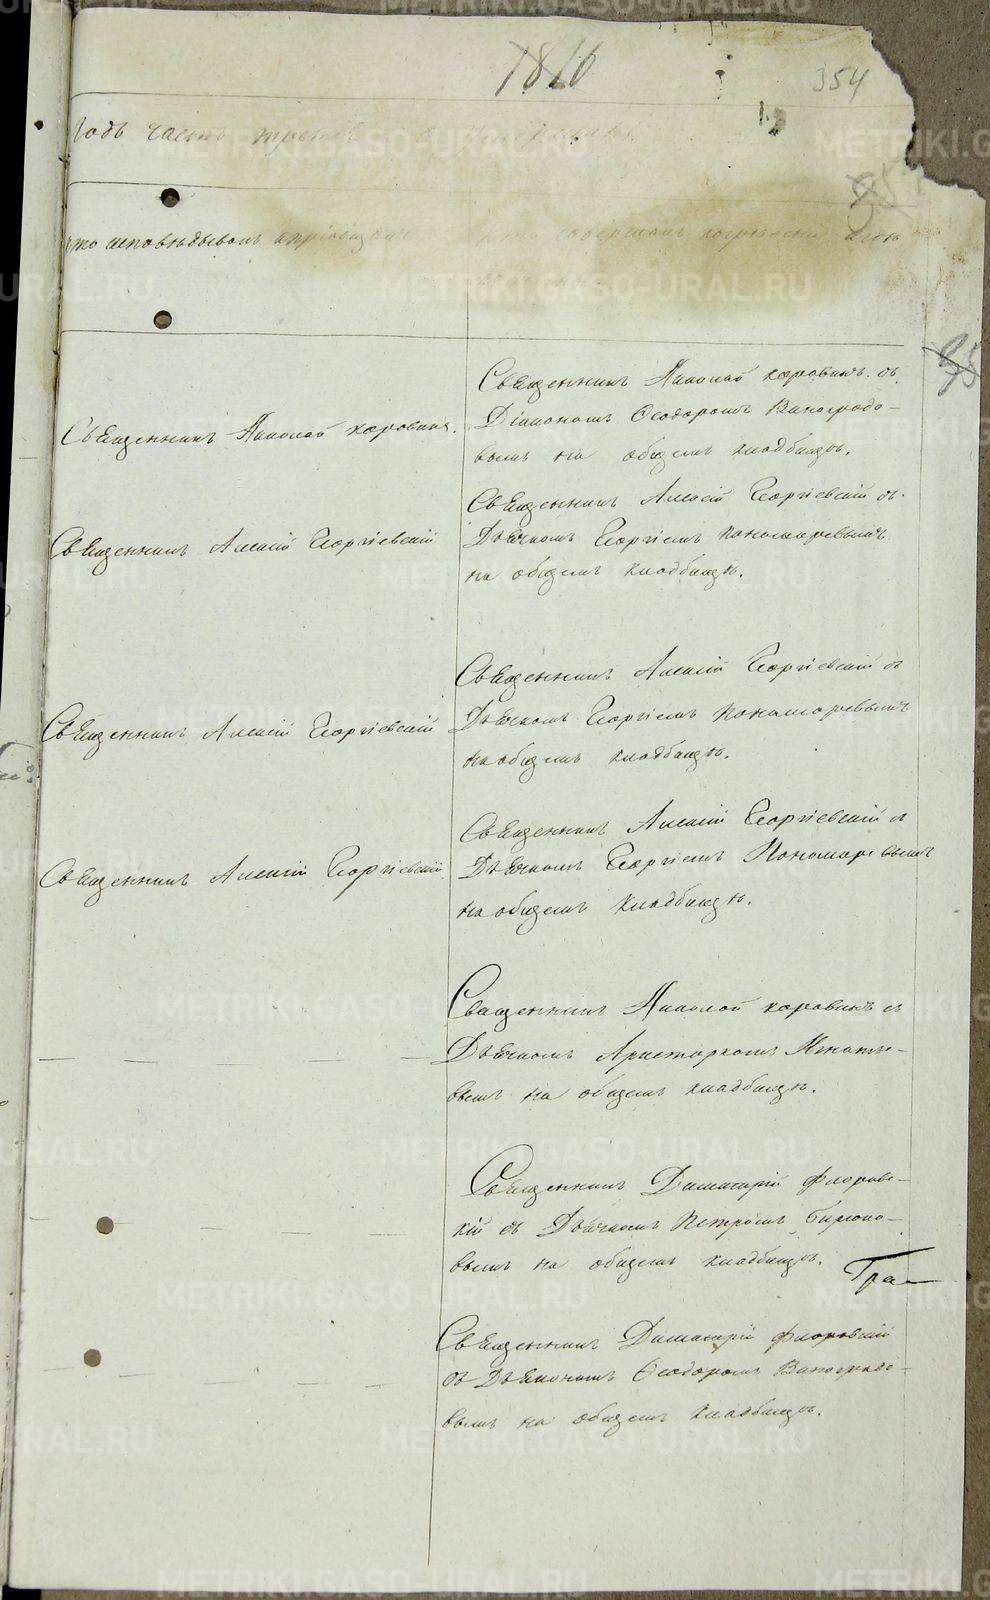 1816
354
годъ часть третья
кто исповѣдывалъ и пріобщалъ
кто совершалъ погребеніе и гдѣ
Священникъ Николай Коровинъ.
Священникъ Николай Коровинъ съ
Діакономъ Ѳеодоромъ Виноградо-
вымъ на общемъ кладбищѣ.
Священникъ Алексій Георгіевскій
Священникъ Алексій Георгіевскій съ
Дьячкомъ Георгіемъ Пономаревымъ
на общемъ кладбищѣ.
Священникъ Алексій Георгіевскій
Священникъ Алексій Георгіевскій съ
Дьячкомъ Георгіемъ Пономаревымъ
на общемъ кладбищѣ.
Священникъ Алексій Георгіевскій
Священникъ Алексій Георгіевскій съ
Дьячкомъ Георгіемъ Пономаревымъ
на общемъ кладбищѣ.
Священникъ Николай Коровинъ съ
Дьячкомъ Аристархомъ Игнать-
вымъ на общемъ кладбищѣ.
Священникъ Димитрій Флоровс-
кій съ Дьячкомъ Петромъ Бирюко-
вымъ на общемъ кладбищѣ.
Гра-
Священникъ Димитрій Флоровскій
съ Діакономъ Ѳеодоромъ Виноградо-
вымъ на общемъ кладбищѣ.
METRIKI.GASO-URAL.RU